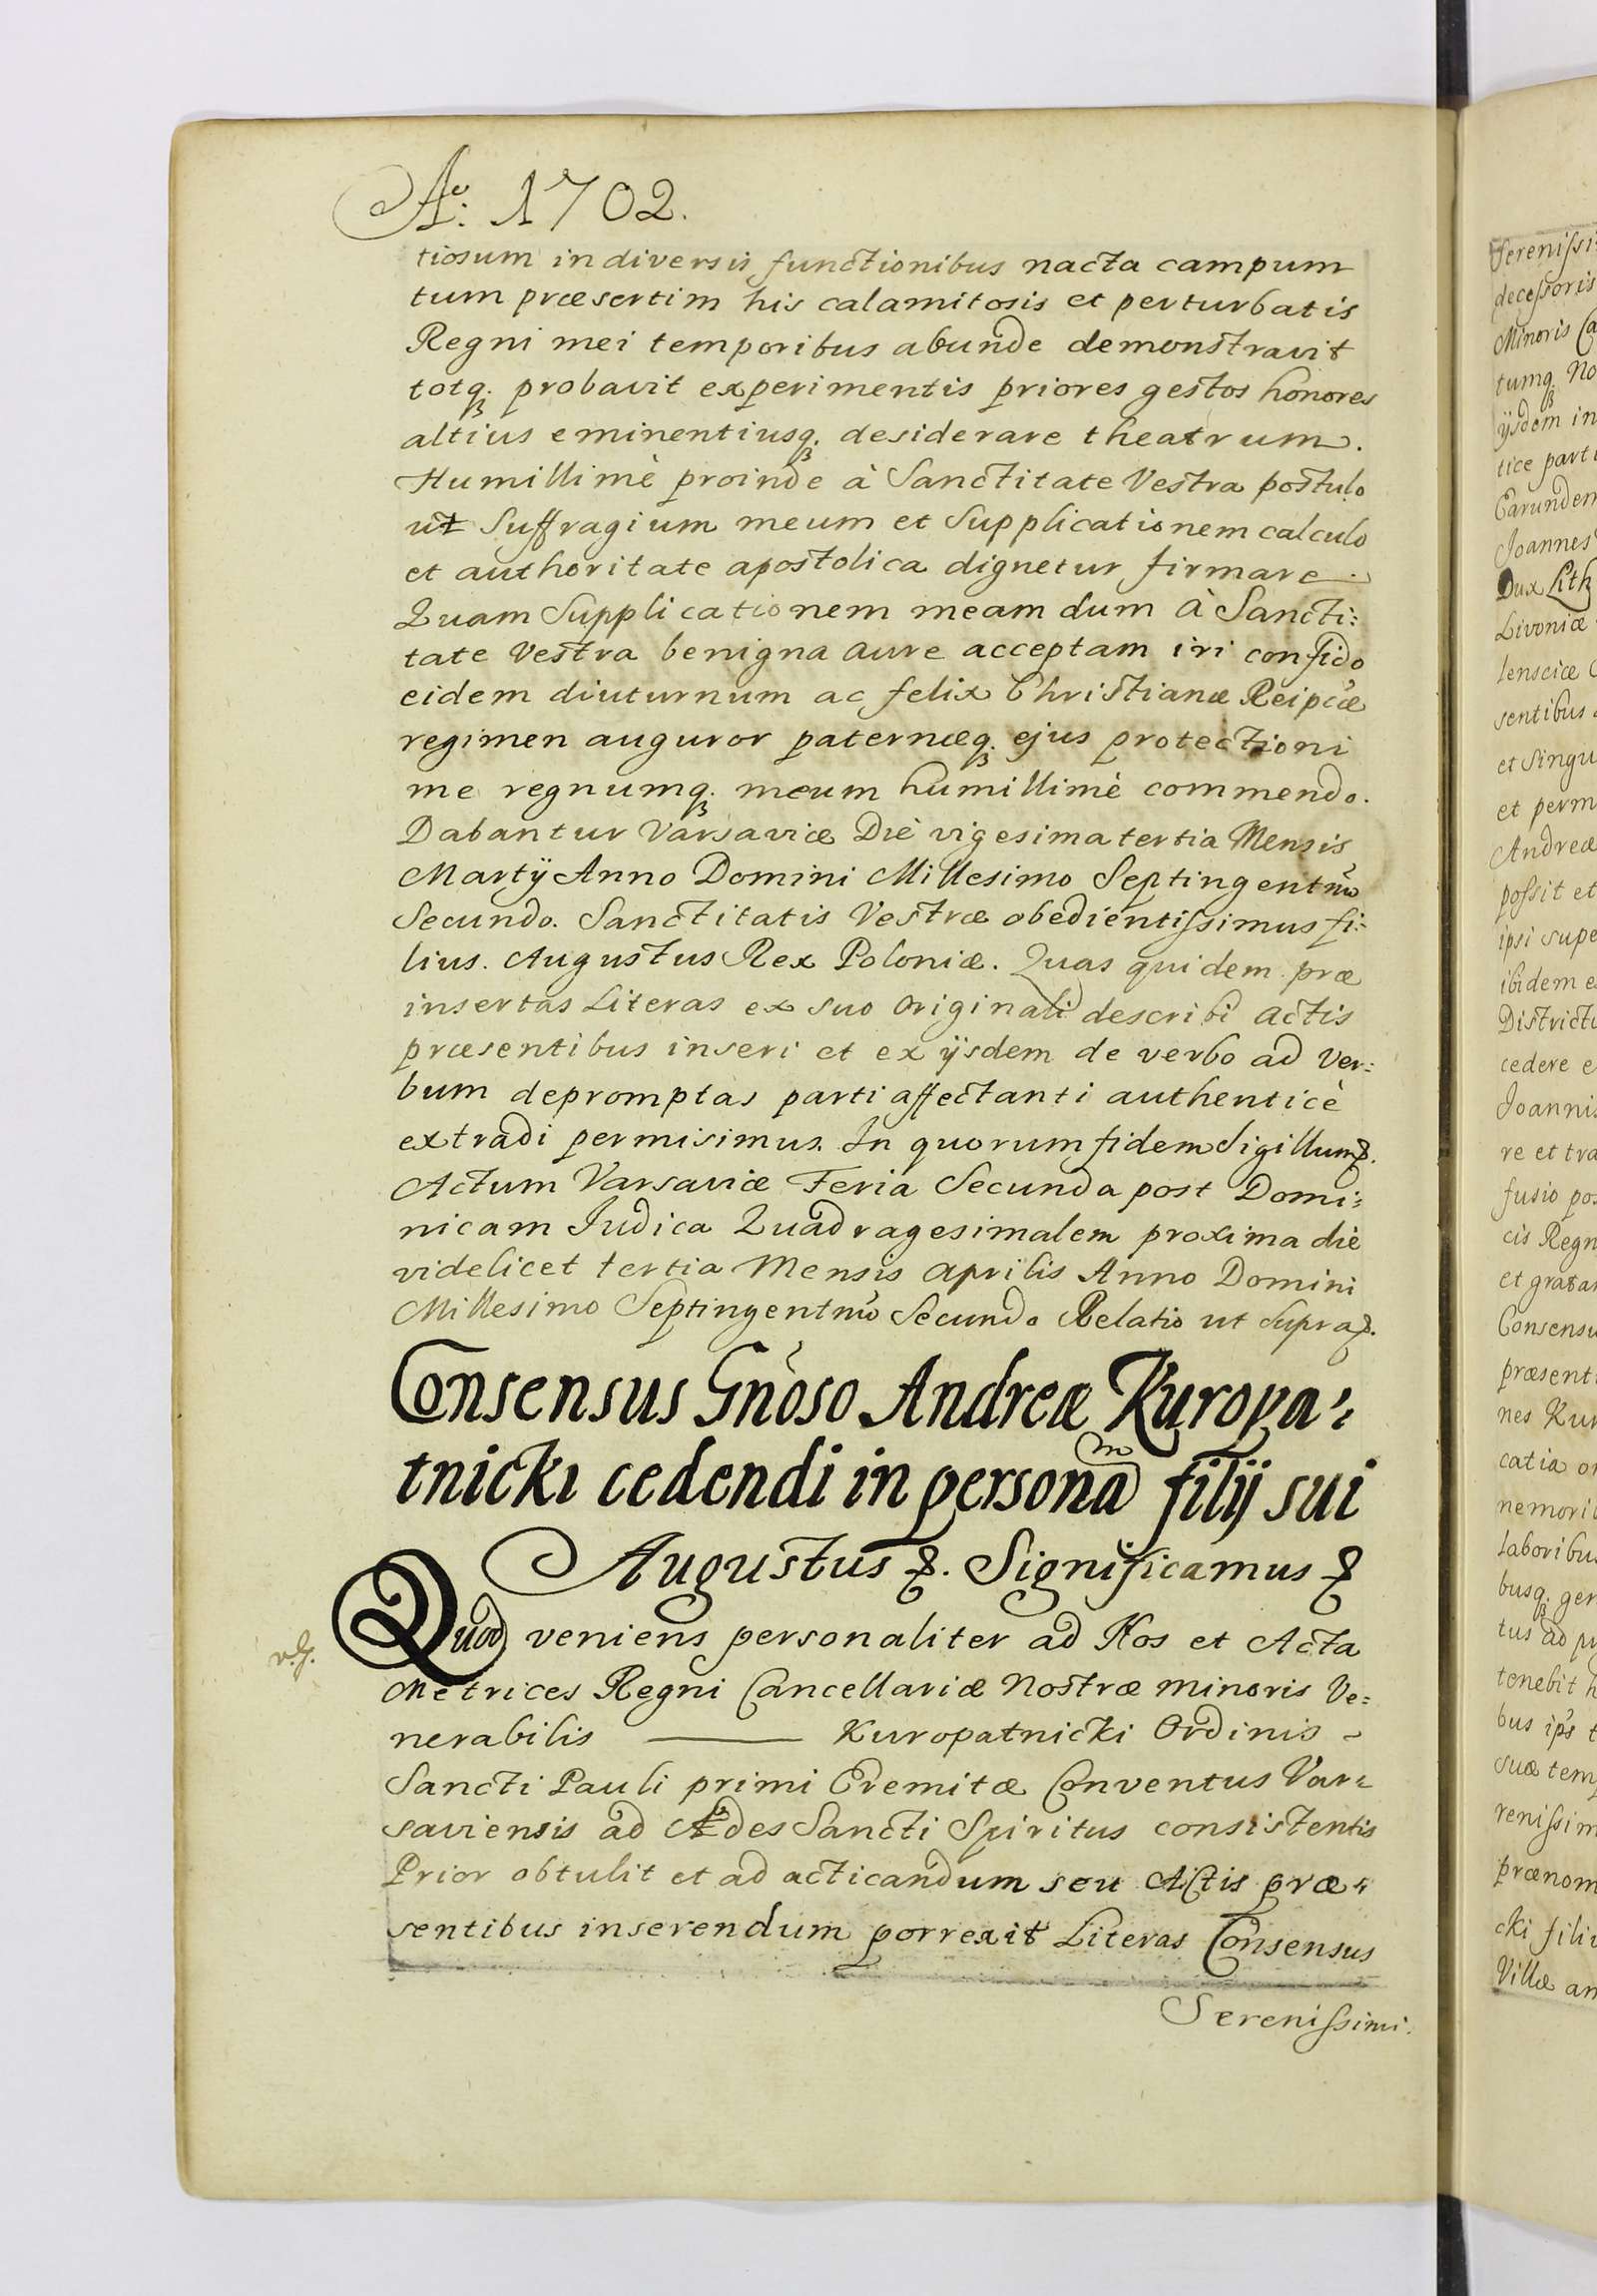 Aō: 1702.
tiosum in diversis functionibus nacta campum
tum præsertim his calamitosis et perturbatis
Regni mei temporibus abunde demonstravit
totq; probavit experimentis priores gestos honores
altius eminentiusq; desiderare theatrum.
Humillimè proinde à Sanctitate Vestra postulo
ut Suffragium meum et Supplicationem calculo
et authoritate apostolica dignetur firmare.
Quam Supplicationem meam dum à Sancti:
tate Vestra benigna aure acceptam iri confido
eidem diuturnum ac felix Christianæ Reipcæ
regimen auguror paternæq; ejus protectioni
me regnumq; meum humillimè commendo.
Dabantur Varsaviæ Die vigesima tertia Mensis
Martÿ Anno Domini Millesimo Septingentmo
Secundo. Sanctitatis Vestræ obedientissimus fi:
lius. Augustus Rex Poloniæ. Quas quidem præ
insertas Literas ex suo Originali describi Actis
præsentibus inseri et ex ÿsdem de verbo ad ver:
bum depromptas parti affectanti authenticè
extradi permisimus. In quorum fidem Sigillum &.
Actum Varsaviæ Feria Secunda post Domi:
nicam Judica Quadragesimalem proxima die
videlicet tertia Mensis Aprilis Anno Domini
Millesimo Septingentmo Secundo Relatio ut Supra &.
Consensus Gnoso Andreæ Kuropa:
tnicki cedendi in personam filÿ sui
Augustus &. Significamus &
Quod veniens personaliter ad Nos et Acta
Metrices Regni Cancellariæ Nostræ minoris Ve:
nerabilis ——— Kuropatnicki Ordinis
Sancti Pauli primi Eremitæ Conventus Var:
saviensis ad Ædes Sancti Spiritus consistentis
Prior obtulit et ad acticandum seu Actis præ:
sentibus inserendum porrexit Literas Consensus
Serenissimi.
Serenissi
decessoris
Minoris Ca
tumq; No
ÿsdem in
tice parti
Earundem
Joannes
Dux Lith
Livoniæ
lensciæ
sentibus
et Singu
et perm
Andreæ
possit et
ipsi supe
ibidem e
Districtu
cedere e
Joannis
re et tra
fusio pos
cis Regn
et gratan
Consensu
præsenti
nes Kur
catia or
nemorib
laboribus
busq; gen
tus ad pr
tenebit h
bus ips t
suæ tem
renissim
prænom
cki filio
Villæ an